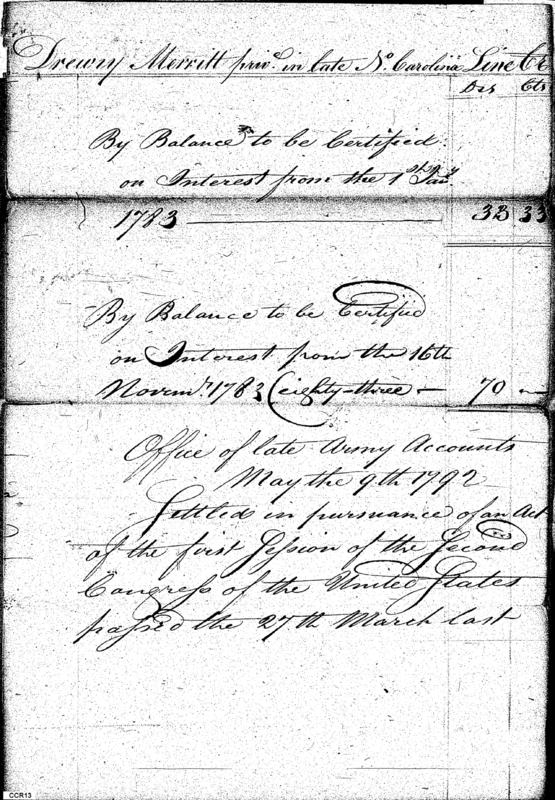 Drewry Merritt priv.t in late No. Carolina Line Cr
Drs Cts
By Balance to be Certified
on Interest from the 1st Jany
1783 33 33
By Balance to be Certified
on Interest from the 16th
Novemr. 1783 (eighty-three — 70 –
Office of late Army Accounts
May the 9th 1792
Settled in pursuance of an Act
of the first Session of the Second
Congress of the United States
passed the 27th March last
CCR13